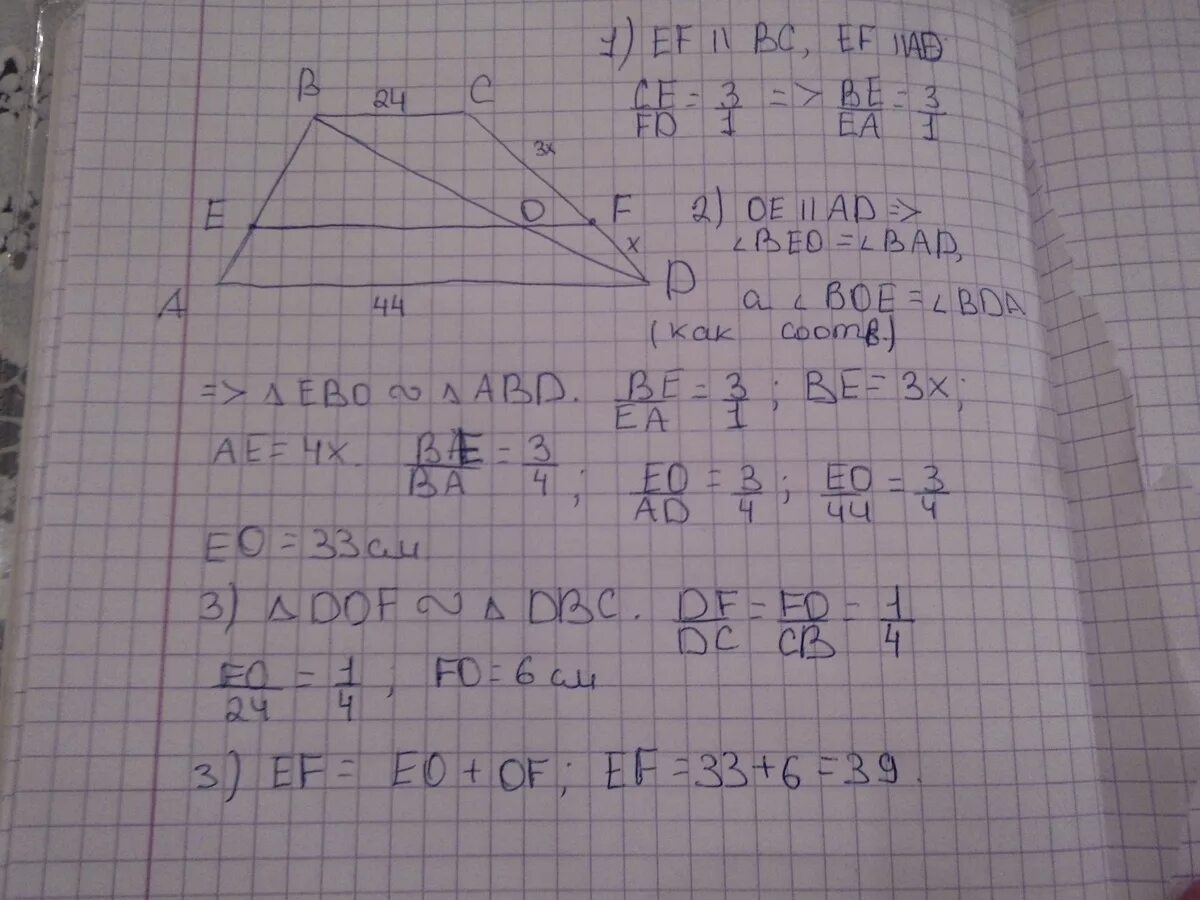 1) EF || BC, EF || AD
CE/FD = 3/1 => BE/EA = 3/1
B 24 C
3x
E O F
x
A 44 D
2) OE || AD =>
∠BEO = ∠BAD,
а ∠BOE = ∠BDA
(как соотв.)
=> △EBO ∾ △ABD. BE/EA = 3/1; BE = 3x;
AE = 4x. BE/BA = 3/4; EO/AD = 3/4; EO/44 = 3/4
EO = 33 см
3) △DOF ∾ △DBC. DF/DC = FO/CB = 1/4
FO/24 = 1/4; FO = 6 см
3) EF = EO + OF; EF = 33 + 6 = 39.